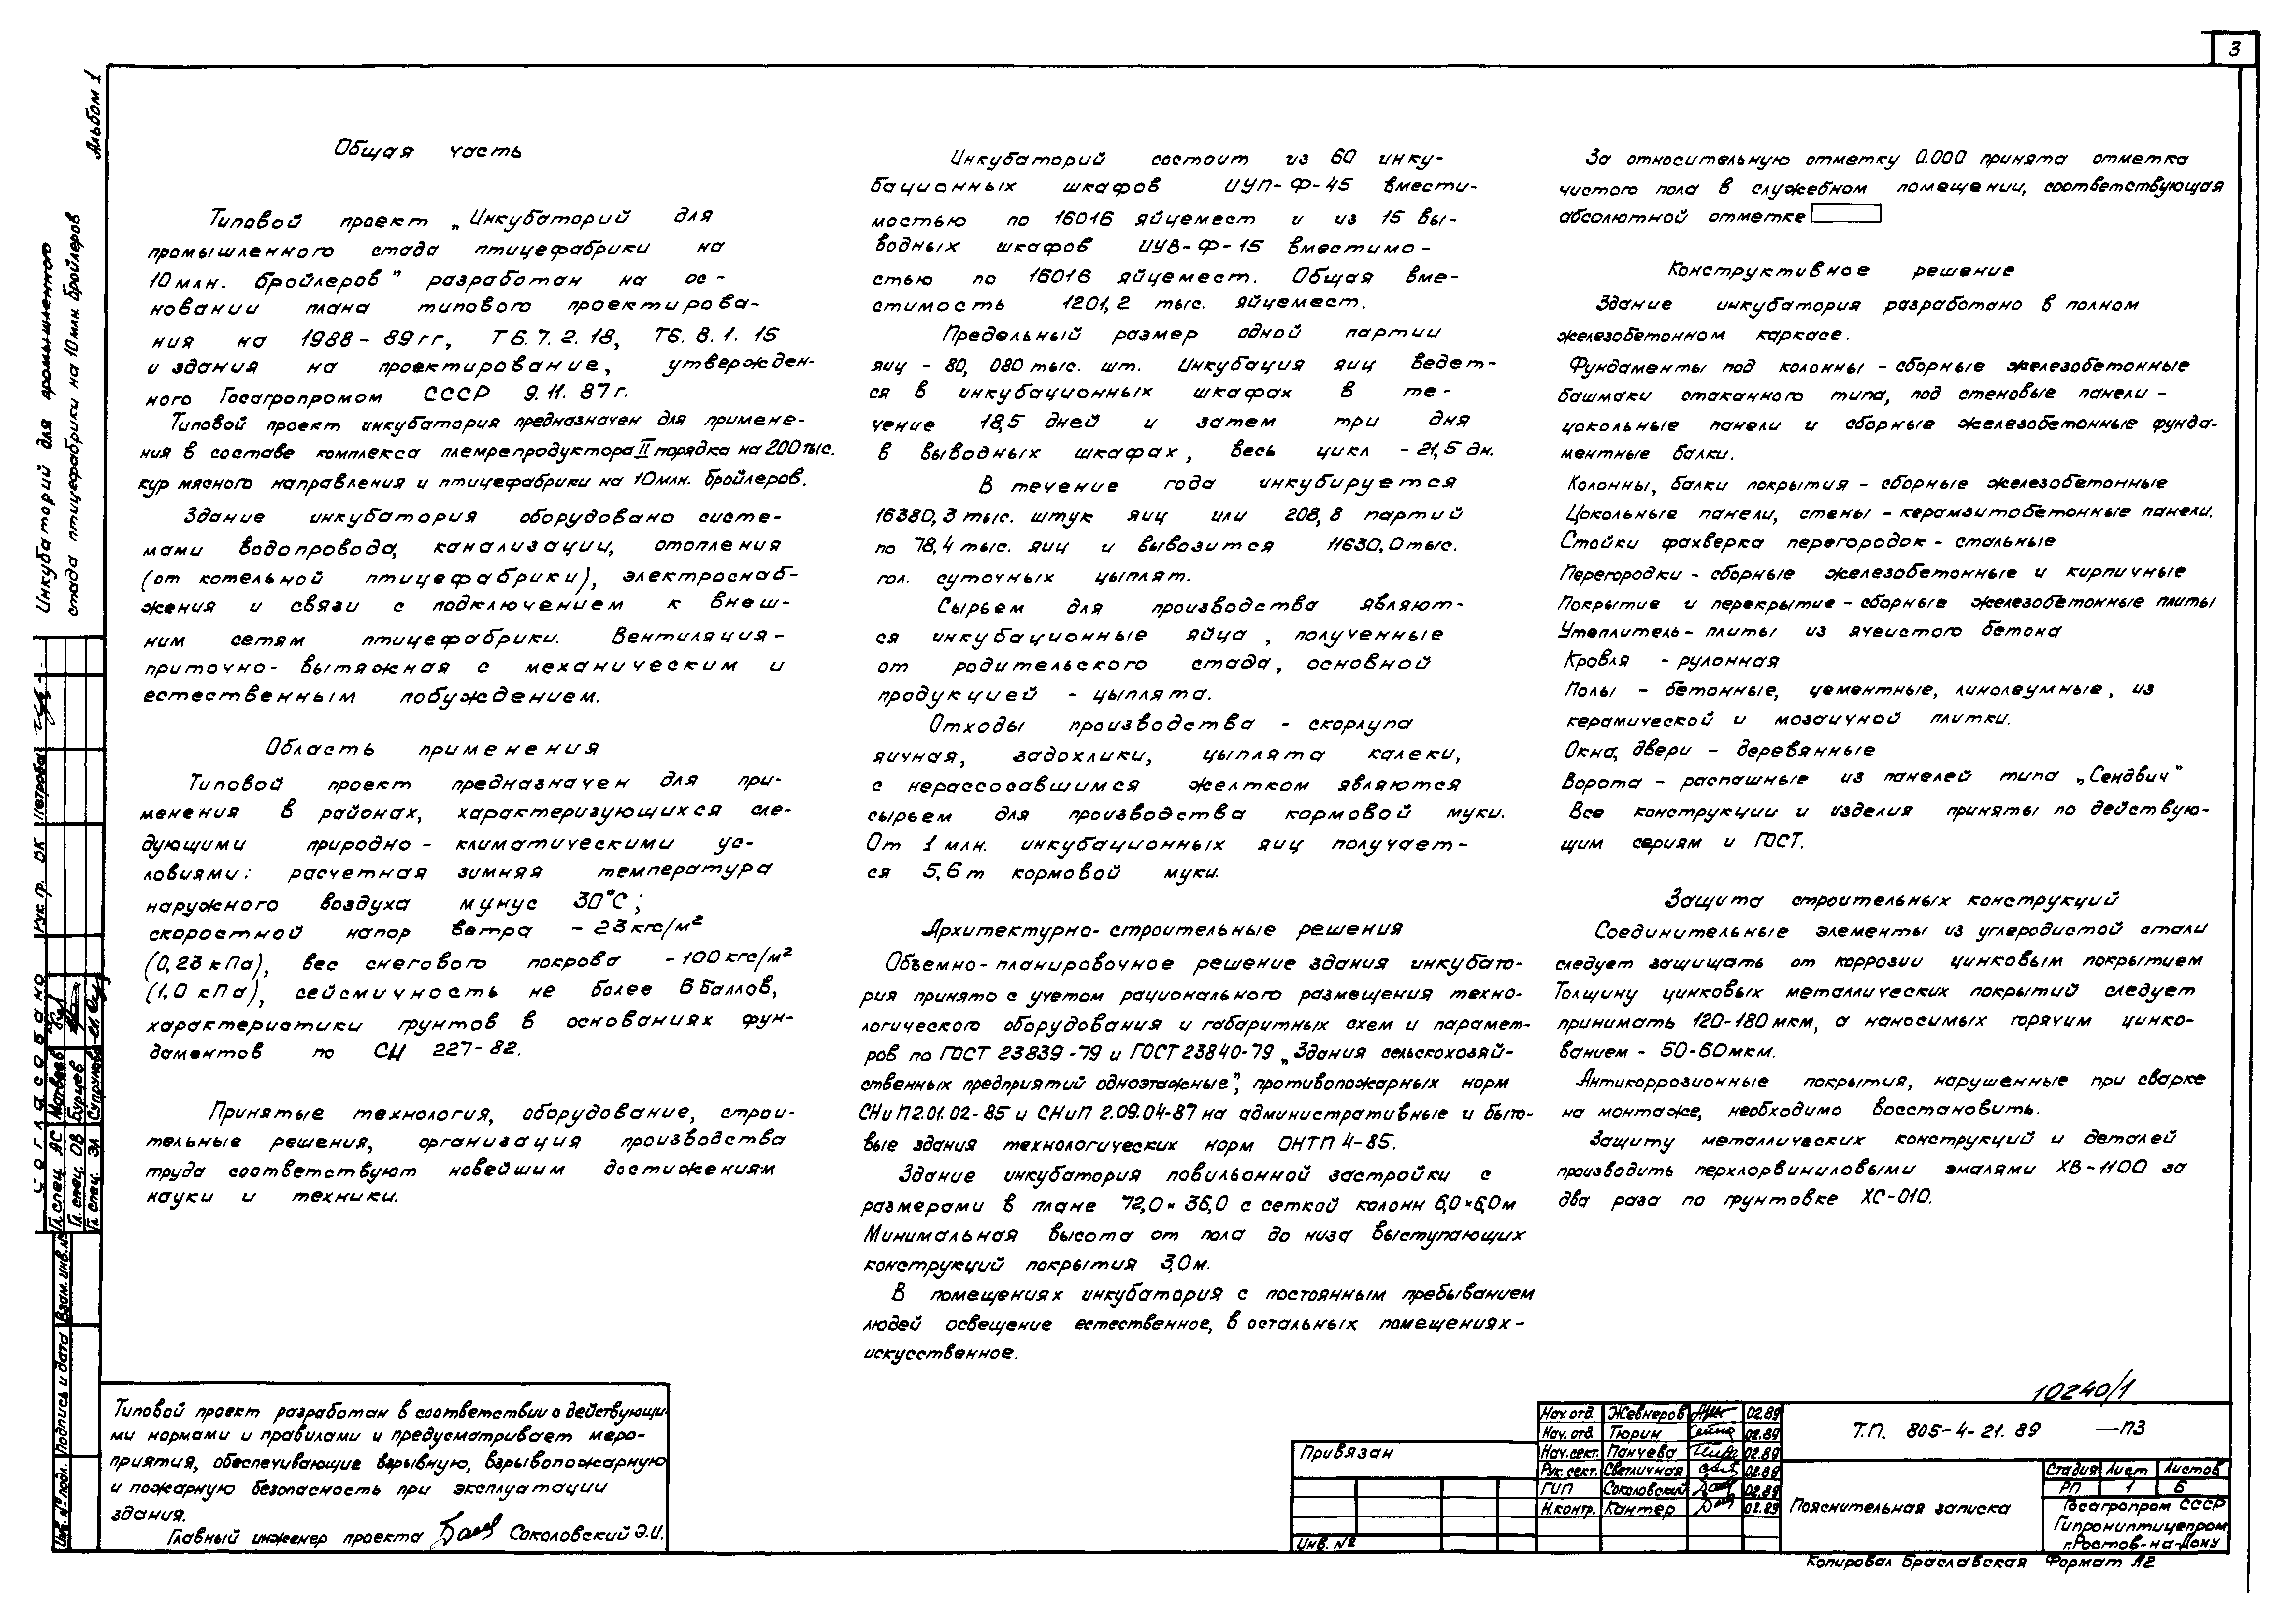 3
Альбом 1
Инкубаторий для промышленного
стада птицефабрики на 10 млн. бройлеров
Общая часть
Типовой проект „Инкубаторий для
промышленного стада птицефабрики на
10 млн. бройлеров" разработан на ос-
новании плана типового проектирова-
ния на 1988-89гг, Т6.7.2.18, Т6.8.1.15
и здания на проектирование, утвержден-
ного Госагропромом СССР 9.11.87г.
Типовой проект инкубатория предназначен для примене-
ния в составе комплекса племрепродуктора II порядка на 200 тыс.
кур мясного направления и птицефабрики на 10 млн. бройлеров.
Здание инкубатория оборудовано систе-
мами водопровода, канализации, отопления
(от котельной птицефабрики), электроснаб-
жения и связи с подключением к внеш-
ним сетям птицефабрики. Вентиляция-
приточно-вытяжная с механическим и
естественным побуждением.
Область применения
Типовой проект предназначен для при-
менения в районах, характеризующихся сле-
дующими природно-климатическими ус-
ловиями: расчетная зимняя температура
наружного воздуха мунус 30°С;
скоростной напор ветра - 23 кгс/м²
(0,23 кПа), вес снегового покрова - 100 кгс/м²
(1,0 кПа), сейсмичность не более 6 баллов,
характеристики грунтов в основаниях фун-
даментов по СН 227-82.
Принятые технология, оборудование, строи-
тельные решения, организация производства
труда соответствуют новейшим достижениям
науки и техники.
Типовой проект разработан в соответствии с действующи-
ми нормами и правилами и предусматривает меро-
приятия, обеспечивающие взрывную, взрывопожарную
и пожарную безопасность при эксплуатации
здания.
Главный инженер проекта Соколовский Э.И.
Инкубаторий состоит из 60 инку-
бационных шкафов ИУП-Ф-45 вмести-
мостью по 16016 яйцемест и из 15 вы-
водных шкафов ИУВ-Ф-15 вместимо-
стью по 16016 яйцемест. Общая вме-
стимость 1201,2 тыс. яйцемест.
Предельный размер одной партии
яиц - 80, 080 тыс. шт. Инкубация яиц ведет-
ся в инкубационных шкафах в те-
чение 18,5 дней и затем три дня
в выводных шкафах, весь цикл - 21,5 дн.
В течение года инкубируется
16380,3 тыс. штук яиц или 208,8 партий
по 78,4 тыс. яиц и вывозится 11630,0 тыс.
гол. суточных цыплят.
Сырьем для производства являют-
ся инкубационные яйца, полученные
от родительского стада, основной
продукцией - цыплята.
Отходы производства - скорлупа
яичная, задохлики, цыплята калеки,
с нерассосавшимся желтком являются
сырьем для производства кормовой муки.
От 1 млн. инкубационных яиц получает-
ся 5,6 т кормовой муки.
Архитектурно-строительные решения
Объемно-планировочное решение здания инкубато-
рия принято с учетом рационального размещения техно-
логического оборудования и габаритных схем и парамет-
ров по ГОСТ 23839-79 и ГОСТ 23840-79 „Здания сельскохозяй-
ственных предприятий одноэтажные", противопожарных норм
СНиП 2.01.02-85 и СНиП 2.09.04-87 на административные и быто-
вые здания технологических норм ОНТП 4-85.
Здание инкубатория повильонной застройки с
размерами в плане 72,0×36,0 с сеткой колонн 6,0×6,0м
Минимальная высота от пола до низа выступающих
конструкций покрытия 3,0м.
В помещениях инкубатория с постоянным пребыванием
людей освещение естественное, в остальных помещениях-
искусственное.
За относительную отметку 0.000 принята отметка
чистого пола в служебном помещении, соответствующая
абсолютной отметке
Конструктивное решение
Здание инкубатория разработано в полном
железобетонном каркасе.
Фундаменты под колонны - сборные железобетонные
башмаки стаканного типа, под стеновые панели -
цокольные панели и сборные железобетонные фунда-
ментные балки.
Колонны, балки покрытия - сборные железобетонные
Цокольные панели, стены - керамзитобетонные панели.
Стойки фахверка перегородок - стальные
Перегородки - сборные железобетонные и кирпичные
Покрытие и перекрытие - сборные железобетонные плиты
Утеплитель - плиты из ячеистого бетона
Кровля - рулонная
Полы - бетонные, цементные, линолеумные, из
керамической и мозаичной плитки.
Окна, двери - деревянные
Ворота - распашные из панелей типа „Сендвич"
Все конструкции и изделия приняты по действую-
щим сериям и ГОСТ.
Защита строительных конструкций
Соединительные элементы из углеродистой стали
следует защищать от коррозии цинковым покрытием
Толщину цинковых металлических покрытий следует
принимать 120-180 мкм, а наносимых горячим цинко-
ванием - 50-60 мкм.
Антикоррозионные покрытия, нарушенные при сварке
на монтаже, необходимо восстановить.
Защиту металлических конструкций и деталей
производить перхлорвиниловыми эмалями ХВ-1100 за
два раза по грунтовке ХС-010.
10240/1
Привязан
Инв. №
Нач. отд. Жевнеров 02.89
Нач. отд. Тюрин 02.89
Нач. сект. Панчева 02.89
Рук. сект. Светличная 02.89
ГИП Соколовский 02.89
Н. контр. Кантер 02.89
Т.П. 805-4-21.89 -ПЗ
Пояснительная записка
Стадия Лист Листов
РП 1 6
Госагропром СССР
Гипрониптицепром
г. Ростов-на-Дону
Копировал Браславская Формат А2
Согласовано
Рук. гр. ВК Петрова
Гл. спец. АС Матвеев
Гл. спец. ОВ Бурцев
Гл. спец. ЭЛ
Взам. инв. №
Подпись и дата
Инв. № подл.